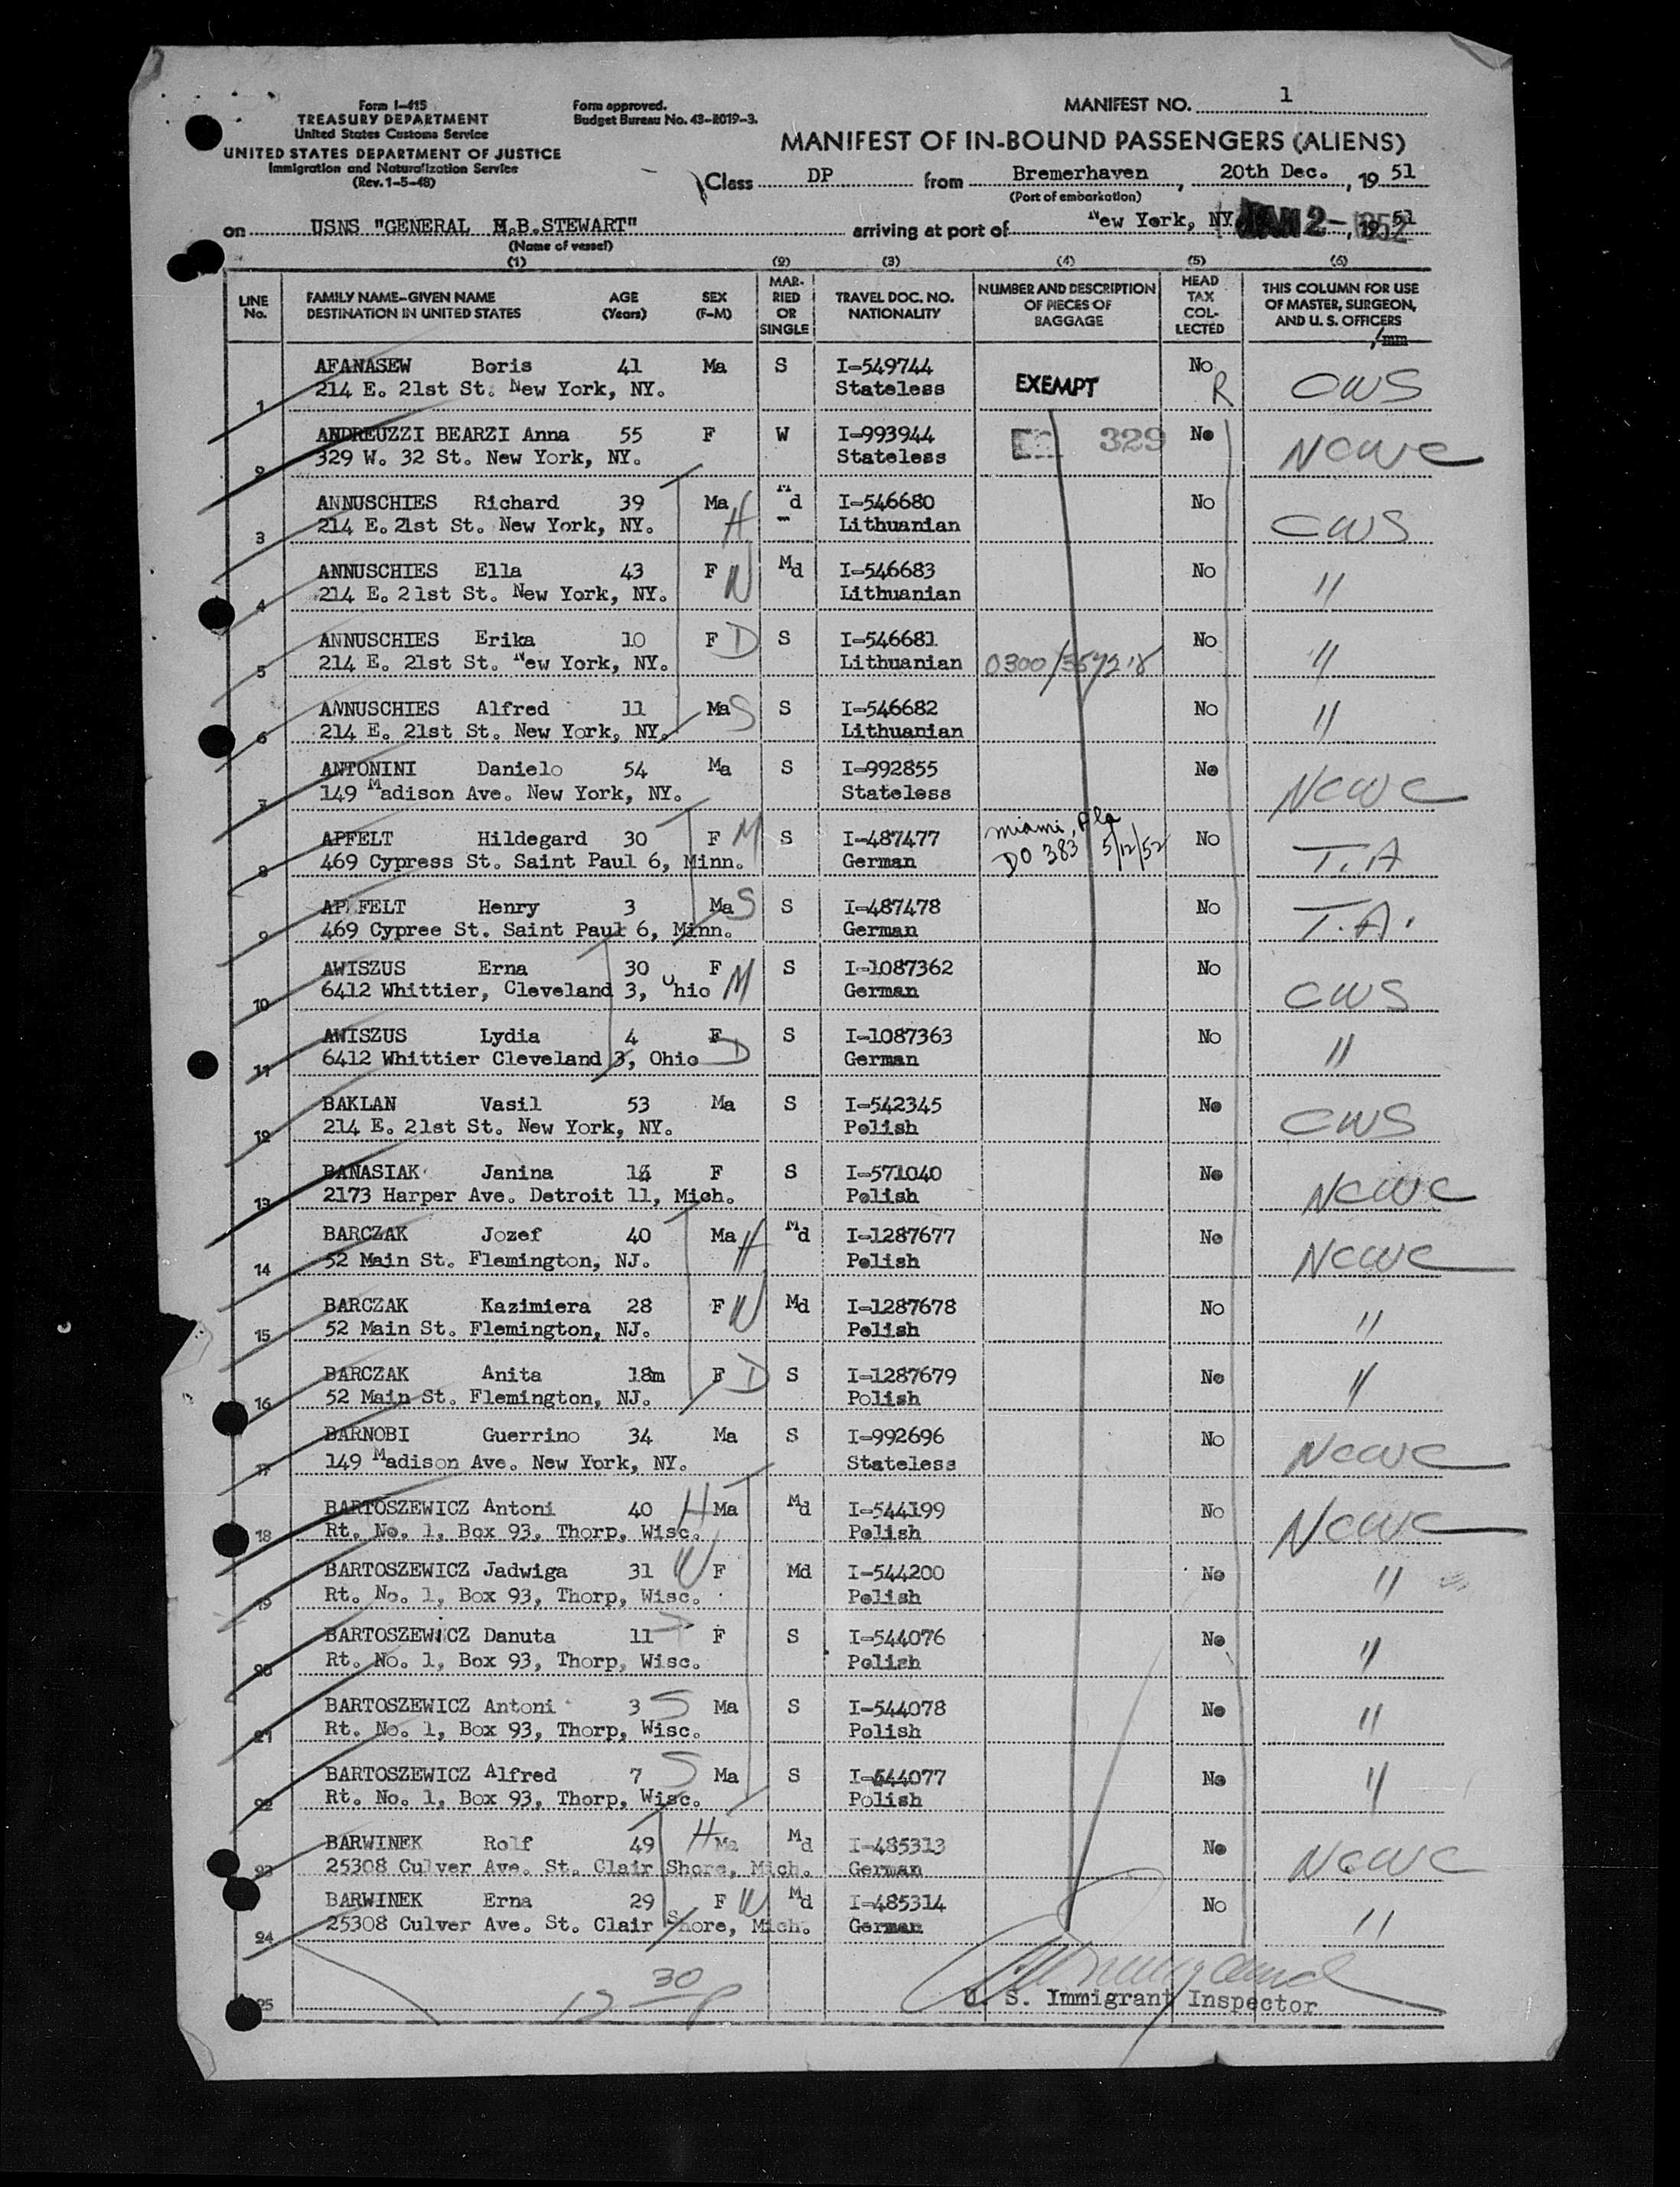 Form I-415
TREASURY DEPARTMENT
United States Customs Service
UNITED STATES DEPARTMENT OF JUSTICE
Immigration and Naturalization Service
(Rev. 1-5-48)
Form approved.
Budget Bureau No. 43-R019-3.
MANIFEST NO. 1
MANIFEST OF IN-BOUND PASSENGERS (ALIENS)
Class DP from Bremerhaven, 20th Dec., 19 51
(Port of embarkation)
on USNS "GENERAL M.B.STEWART" arriving at port of New York, NY. JAN 2- 1952, 19 51
(Name of vessel)
(1) (2) (3) (4) (5) (6)
LINE No. FAMILY NAME-GIVEN NAME DESTINATION IN UNITED STATES AGE (Years) SEX (F-M) MARRIED OR SINGLE TRAVEL DOC. NO. NATIONALITY NUMBER AND DESCRIPTION OF PIECES OF BAGGAGE HEAD TAX COLLECTED THIS COLUMN FOR USE OF MASTER, SURGEON, AND U. S. OFFICERS
AFANASEW Boris 41 Ma S I-549744 No
1 214 E. 21st St. New York, NY. Stateless EXEMPT R CWS
ANDREUZZI BEARZI Anna 55 F W I-993944 329 No
2 329 W. 32 St. New York, NY. Stateless NCWC
ANNUSCHIES Richard 39 Ma H Md I-546680 No
3 214 E. 21st St. New York, NY. Lithuanian CWS
ANNUSCHIES Ella 43 F W Md I-546683 No
4 214 E. 21st St. New York, NY. Lithuanian "
ANNUSCHIES Erika 10 F D S I-546681 No
5 214 E. 21st St. New York, NY. Lithuanian 0300/357218 "
ANNUSCHIES Alfred 11 Ma S S I-546682 No
6 214 E. 21st St. New York, NY. Lithuanian "
ANTONINI Danielo 54 Ma S I-992855 No
7 149 Madison Ave. New York, NY. Stateless NCWC
APFELT Hildegard 30 F M S I-487477 Miami, Fla No
8 469 Cypress St. Saint Paul 6, Minn. German DO 383 5/12/52 T.A
APFELT Henry 3 Ma S S I-487478 No
9 469 Cypree St. Saint Paul 6, Minn. German T.A.
AWISZUS Erna 30 F S I-1087362 No
10 6412 Whittier, Cleveland 3, Ohio M German CWS
AWISZUS Lydia 4 F S I-1087363 No
11 6412 Whittier Cleveland 3, Ohio D German "
BAKLAN Vasil 53 Ma S I-542345 No
12 214 E. 21st St. New York, NY. Polish CWS
BANASIAK Janina F S I-571040 No
13 2173 Harper Ave. Detroit 11, Mich. Polish NCWC
BARCZAK Jozef 40 Ma H Md I-1287677 No
14 52 Main St. Flemington, NJ. Polish NCWC
BARCZAK Kazimiera 28 F W Md I-1287678 No
15 52 Main St. Flemington, NJ. Polish "
BARCZAK Anita 18m F D S I-1287679 No
16 52 Main St. Flemington, NJ. Polish "
BARNOBI Guerrino 34 Ma S I-992696 No
17 149 Madison Ave. New York, NY. Stateless NCWC
BARTOSZEWICZ Antoni 40 H Ma Md I-544199 No
18 Rt. No. 1, Box 93, Thorp, Wisc. Polish NCWC
BARTOSZEWICZ Jadwiga 31 W F Md I-544200 No
19 Rt. No. 1, Box 93, Thorp, Wisc. Polish "
BARTOSZEWICZ Danuta 11 D F S I-544076 No
20 Rt. No. 1, Box 93, Thorp, Wisc. Polish "
BARTOSZEWICZ Antoni 3 S Ma S I-544078 No
21 Rt. No. 1, Box 93, Thorp, Wisc. Polish "
BARTOSZEWICZ Alfred 7 S Ma S I-544077 No
22 Rt. No. 1, Box 93, Thorp, Wisc. Polish "
BARWINEK Rolf 49 H Ma Md I-485313 No
23 25308 Culver Ave. St. Clair Shore, Mich. German NCWC
BARWINEK Erna 29 F W Md I-485314 No
24 25308 Culver Ave. St. Clair Shore, Mich. German "
25 12 30 p U. S. Immigrant Inspector